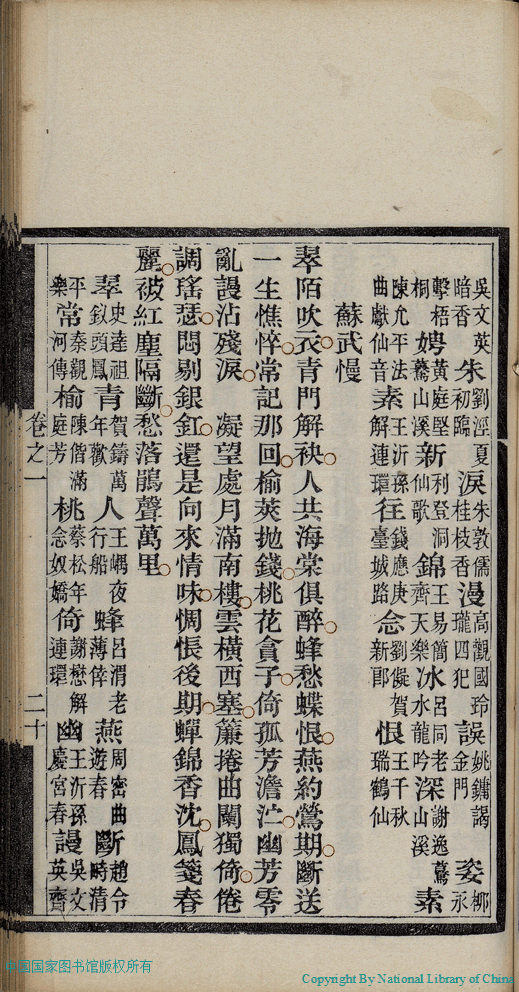 吳文英暗香 朱 劉涇夏初臨 淚 朱敦儒桂枝香 漫 高觀國玲瓏四犯 誤 姚鏞謁金門 姿 柳永
擊梧桐 娉 黃庭堅驀山溪 新 利登洞仙歌 錦 王易簡齊天樂 冰 呂同老水龍吟 深 謝逸驀山溪 素
陳允平法曲獻仙音 素 王沂孫解連環 往 錢應庚臺城路 念 劉儗賀新郎 恨 王千秋瑞鶴仙
蘇武慢
翠陌吹衣青門解袂人共海棠俱醉蜂愁蝶恨燕約鶯期斷送
一生憔悴常記那回榆莢拋錢桃花貪子倚孤芳澹泞幽芳零
亂謾沾殘淚　凝望處月滿南樓雲橫西塞簾捲曲闌獨倚倦
調瑤瑟悶剔銀釭還是向來情味惆悵後期蟬錦香沈鳳箋春
麗被紅塵隔斷愁落鵑聲萬里
翠 史達祖釵頭鳳 青 賀鑄萬年歡 人 王嵎夜行船 蜂 呂渭老薄倖 燕 周密曲遊春 斷 趙令畤清
平樂 常 秦觀河傳 榆 陳偕滿庭芳 桃 蔡松年念奴嬌 倚 謝懋解連環 幽 王沂孫慶宮春 謾 吳文英齊
卷之一 二十
中国国家图书馆版权所有
Copyright By National Library of China